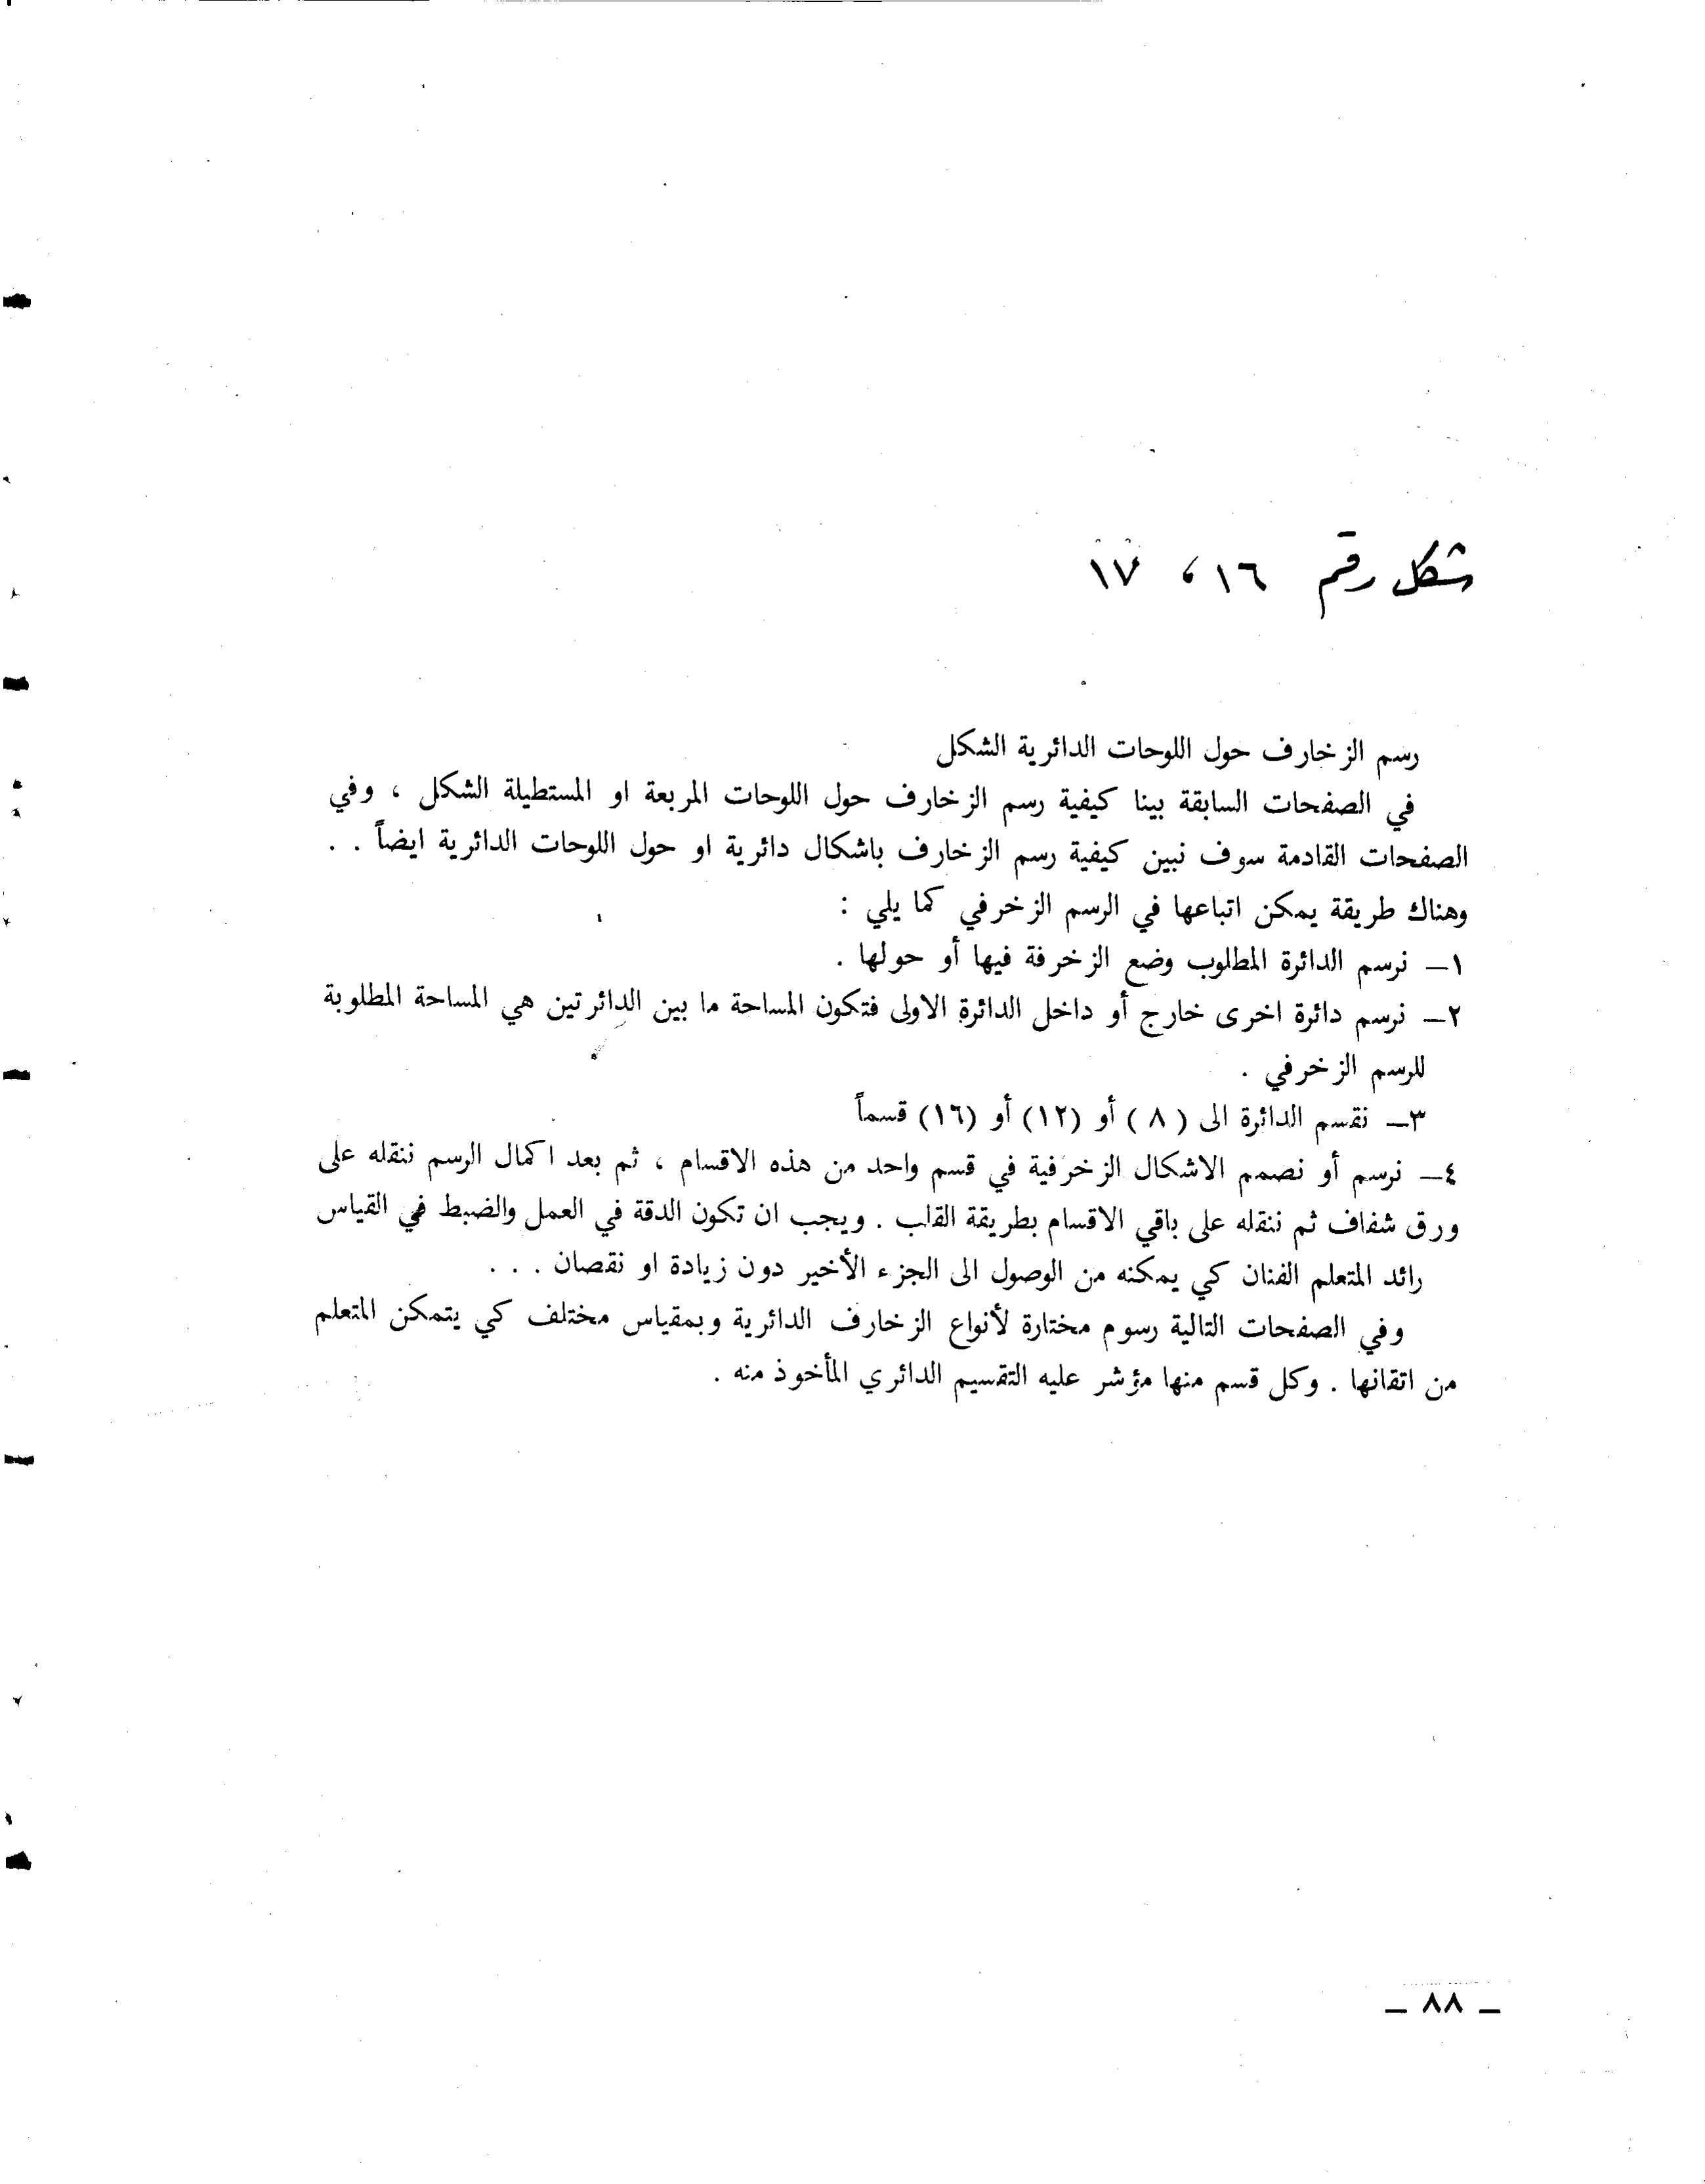 شكل رقم ١٦ ، ١٧
رسم الزخارف حول اللوحات الدائرية الشكل
في الصفحات السابقة بينا كيفية رسم الزخارف حول اللوحات المربعة او المستطيلة الشكل ، وفي
الصفحات القادمة سوف نبين كيفية رسم الزخارف باشكال دائرية او حول اللوحات الدائرية ايضاً . .
وهناك طريقة يمكن اتباعها في الرسم الزخرفي كما يلي :
١– نرسم الدائرة المطلوب وضع الزخرفة فيها أو حولها .
٢– نرسم دائرة اخرى خارج أو داخل الدائرة الاولى فتكون المساحة ما بين الدائرتين هي المساحة المطلوبة
للرسم الزخرفي .
٣– نقسم الدائرة الى ( ٨ ) أو (١٢) أو (١٦) قسماً
٤– نرسم أو نصمم الاشكال الزخرفية في قسم واحد من هذه الاقسام ، ثم بعد اكمال الرسم ننقله على
ورق شفاف ثم ننقله على باقي الاقسام بطريقة القلب . ويجب ان تكون الدقة في العمل والضبط في القياس
رائد المتعلم الفنان كي يمكنه من الوصول الى الجزء الأخير دون زيادة او نقصان . . .
وفي الصفحات التالية رسوم مختارة لأنواع الزخارف الدائرية وبمقياس مختلف كي يتمكن المتعلم
من اتقانها . وكل قسم منها مؤشر عليه التقسيم الدائري المأخوذ منه .
– ٨٨ –